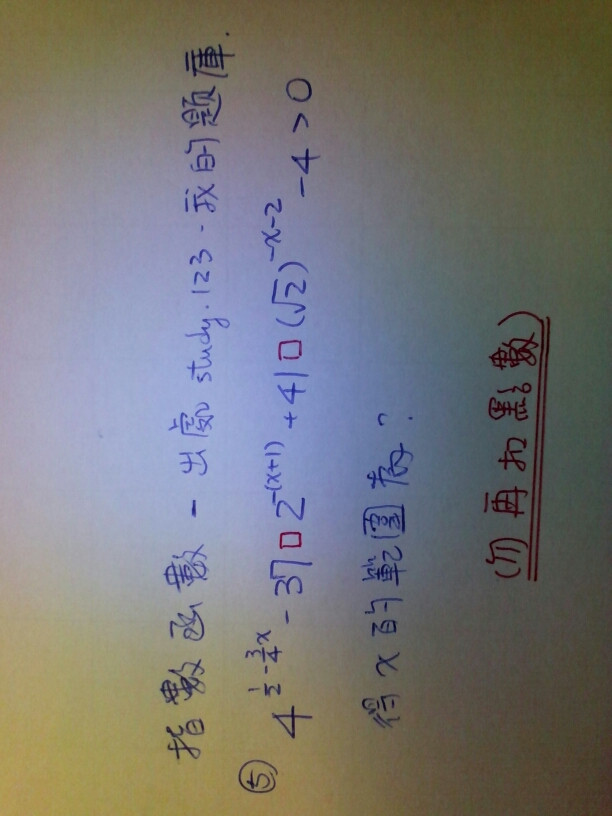 指數函數-出處study.123.我的題庫.
⑤ 4^{\frac{1}{2}-\frac{3}{4}x} - 37□2^{-(x+1)} + 41□(√2)^{-x-2} - 4 > 0
得x的範圍為?
(勿再扣點數)